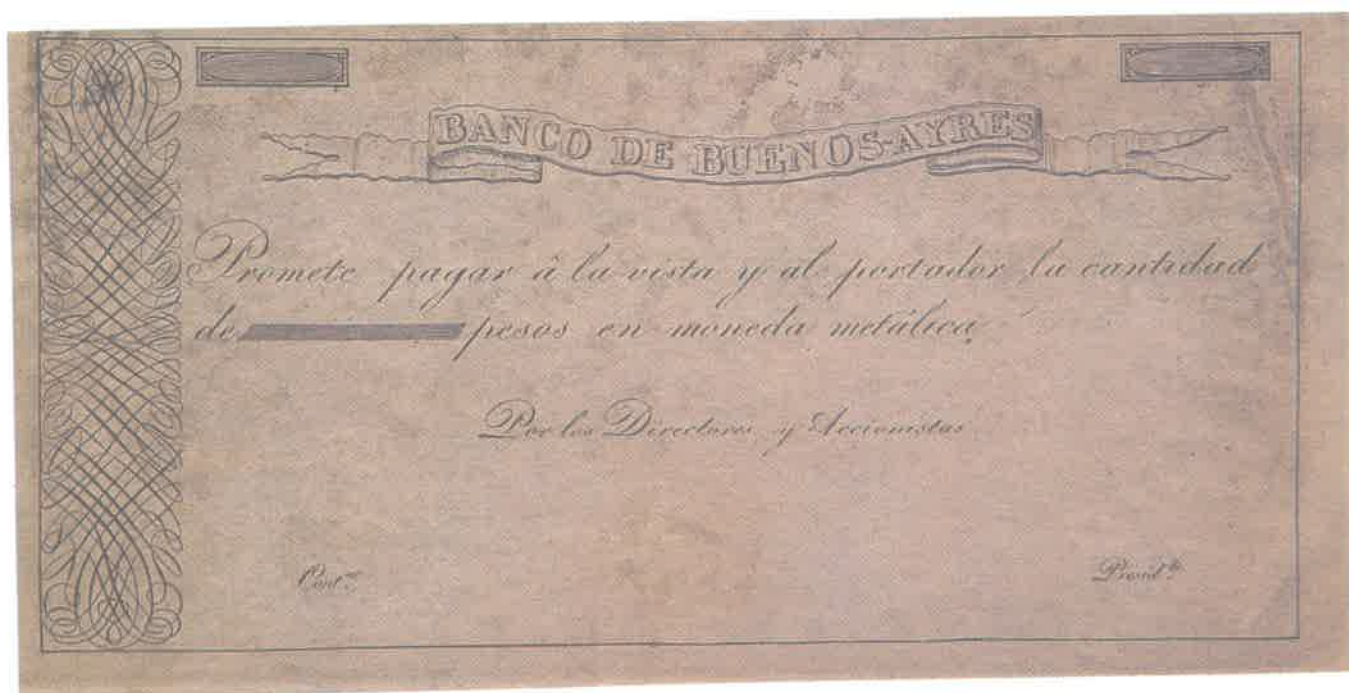 BANCO DE BUENOS-AYRES
Promete pagar â la vista y al portador la cantidad
de pesos en moneda metálica.
Por los Directores y Accionistas
Cont.or
Presid.te